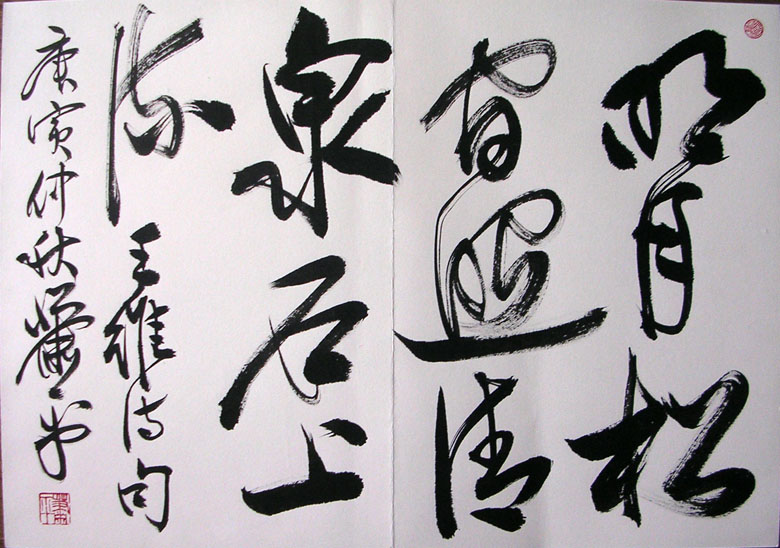 明月松
间照清
泉石上
流 王维诗句
庚寅仲秋 书